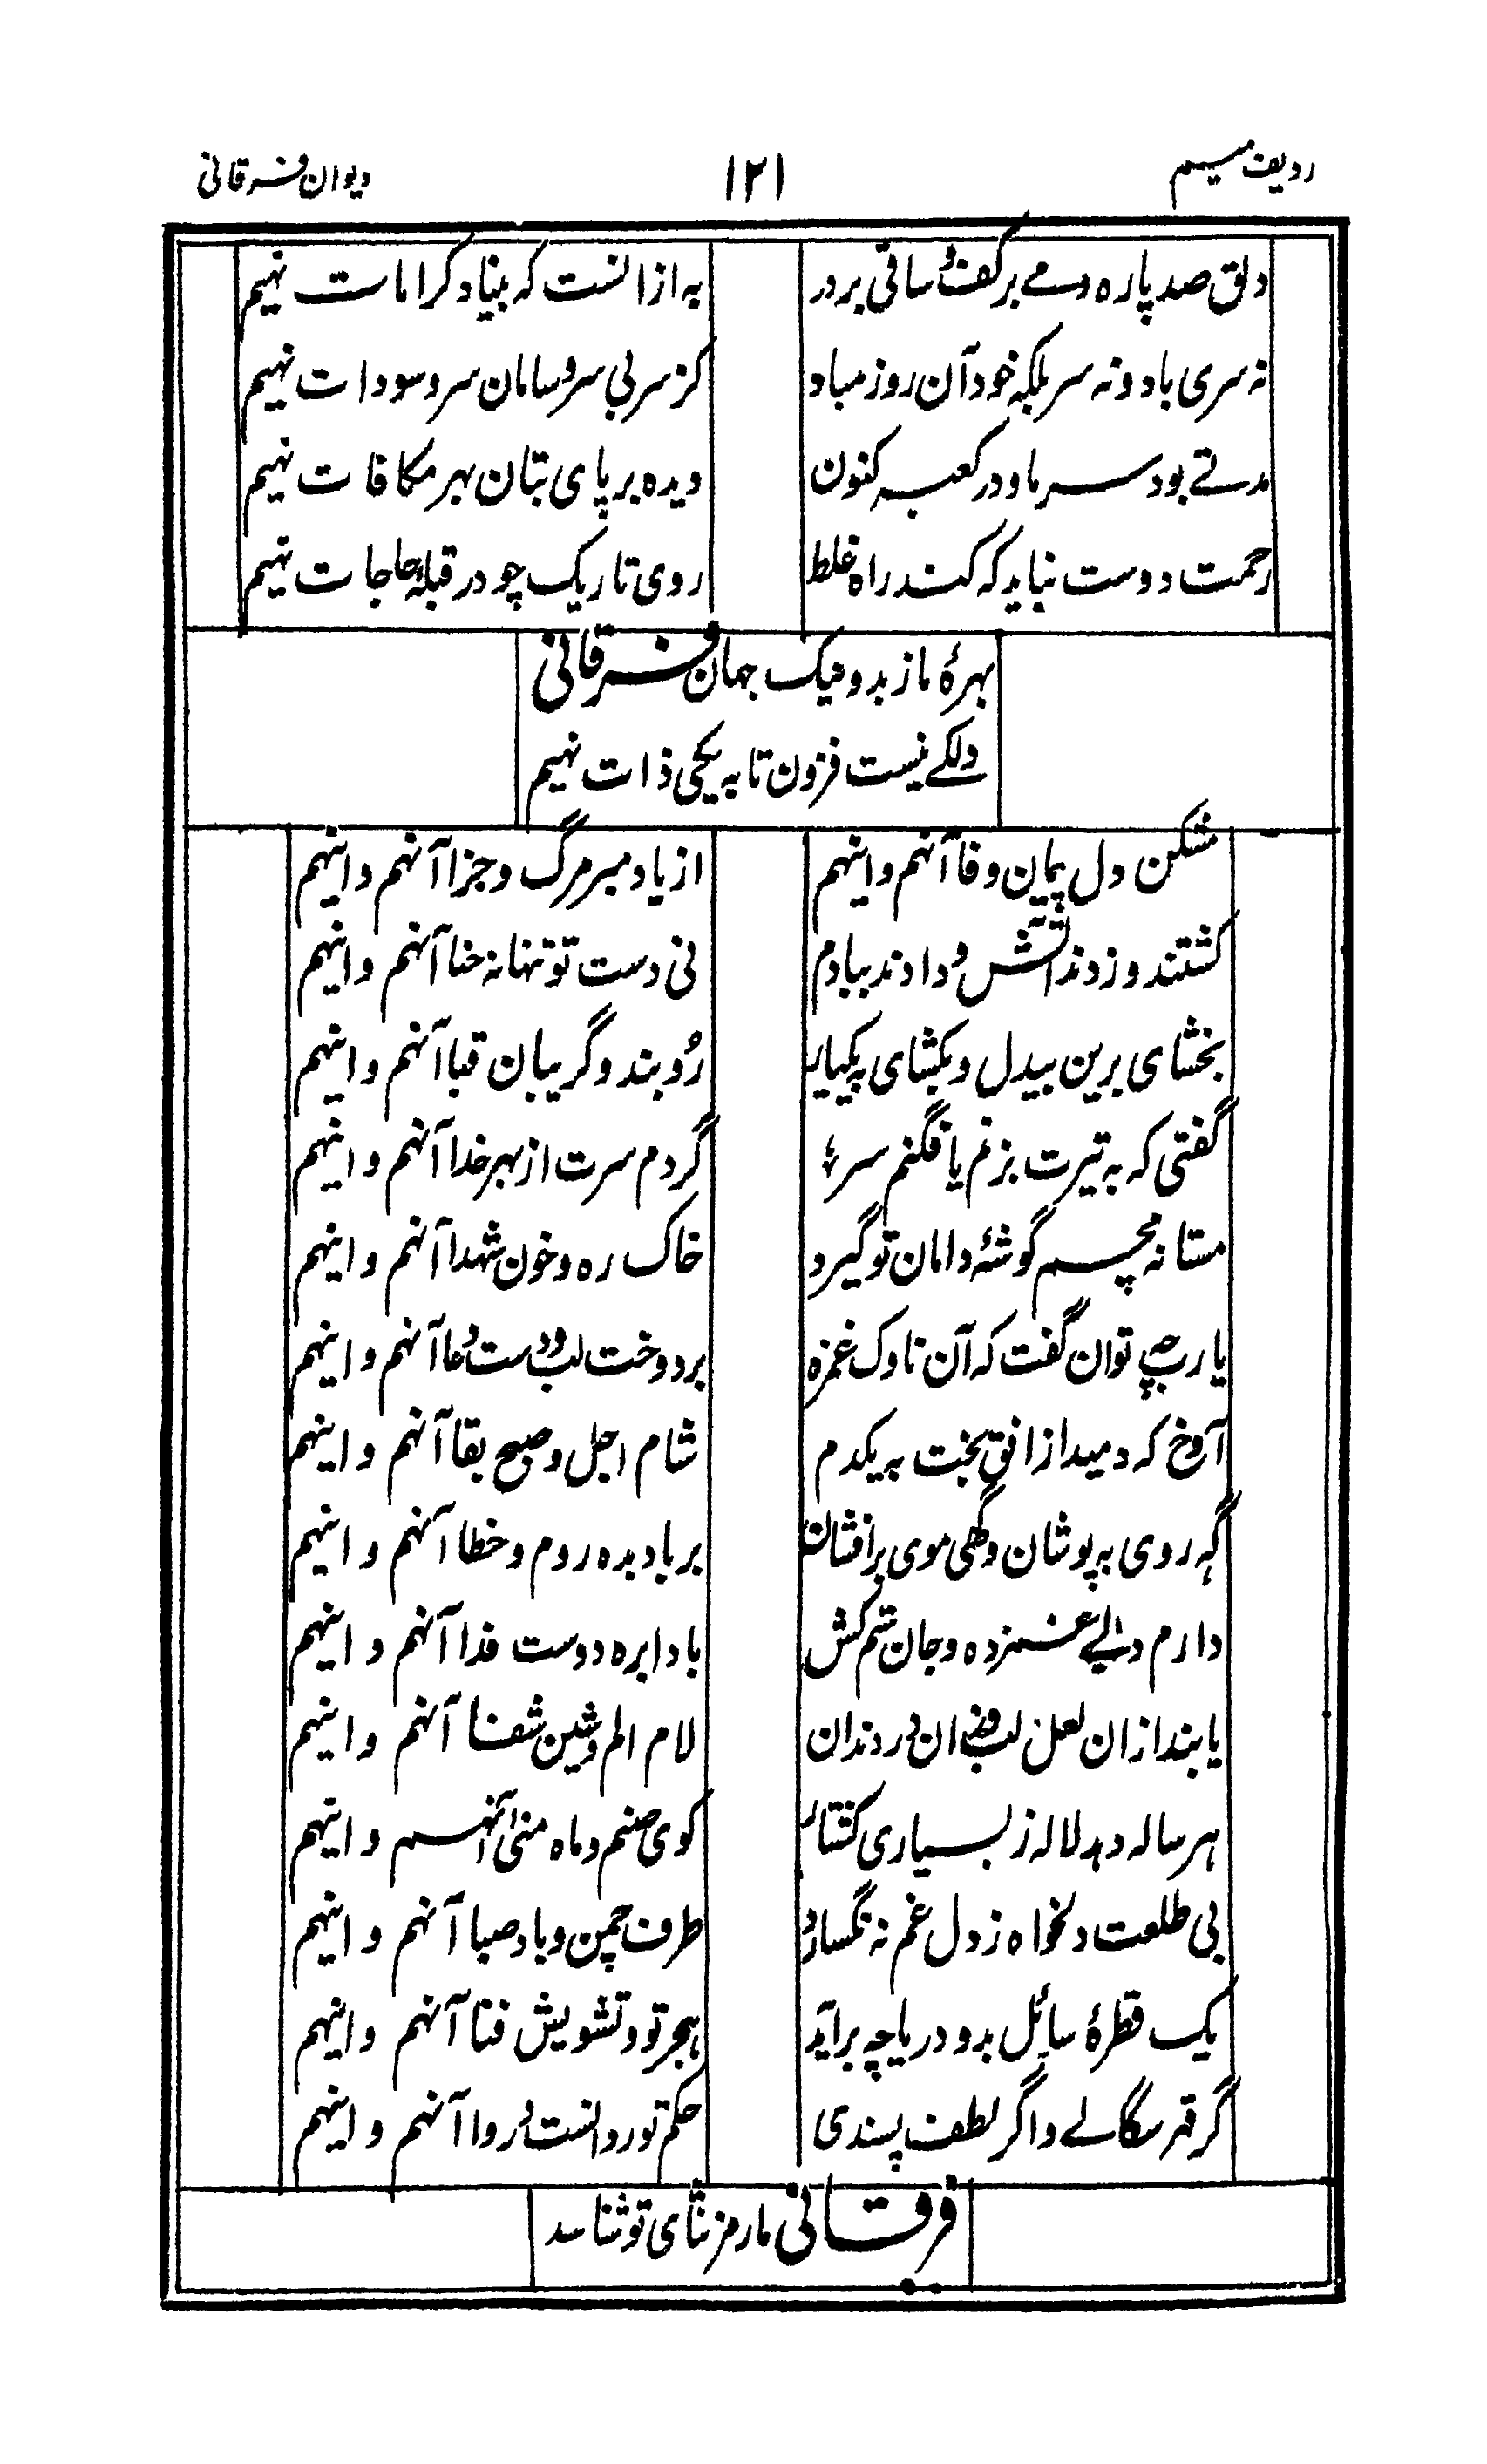 ردیف میم
۱۲۱
دیوان فرقانی
دلق صد پاره و مے بر کف و ساقی بر در
به ازانست که بنیاد کرامات نهیم
نه سری باد و نه سر بلکه خود آن روز مباد
کز سر بی سر و سامان سر و سودات نهیم
مدتے بود سر ما و در کعبه کنون
دیده بر پای بتان بهر مکافات نهیم
رحمت دوست نباید که کند راه غلط
روی تاریک چو در قبلهٔ حاجات نهیم
بهرهٔ ما ز بد و نیک جهان فرقانی
دلکے نیست فزون تا به یکی ذات نهیم
مشکن دل پیمان وفا آنهم و اینهم
از یاد مبر مرگ و جزا آنهم و اینهم
کشتند و زدند آتش و دادند ببادم
نی دست تو تنها نه حنا آنهم و اینهم
بخشای برین بیدل و بکشای به یکبار
رُوبند و گریبان قبا آنهم و اینهم
گفتی که به تیرت بزنم یا فگنم سر
گردم سرت از بهر خدا آنهم و اینهم
مستانه بچم گوشهٔ دامان تو گیرد
خاک ره و خون شهدا آنهم و اینهم
یارب چه توان گفت که آن ناوک غمزه
بر دوخت لب و دست دعا آنهم و اینهم
آوخ که دمید از افق بخت به یکدم
شام اجل و صبح بقا آنهم و اینهم
گه روی به پوشان و گهی موی برافشان
بر باد بده روم و خطا آنهم و اینهم
دارم دلے غمزده و جان ستم کش
بادا بره دوست فدا آنهم و اینهم
یابند ازان لعل لب و زان در دندان
لام الم و شین شفا آنهم و اینهم
هر ساله دهد لاله ز بسیاری کشتار
کوی صنم و ماه منیٰ آنهم و اینهم
بی طلعت دلخواه ز دل غم نه گسارد
طرف چمن و باد صبا آنهم و اینهم
یک قطرهٔ سائل بدو دریا چه برآید
هجر تو و تشویش فنا آنهم و اینهم
گر قهر سگالے و اگر لطف پسندی
حکم تو روانست و روا آنهم و اینهم
فرقانی ما رمز ثنای تو شناسد